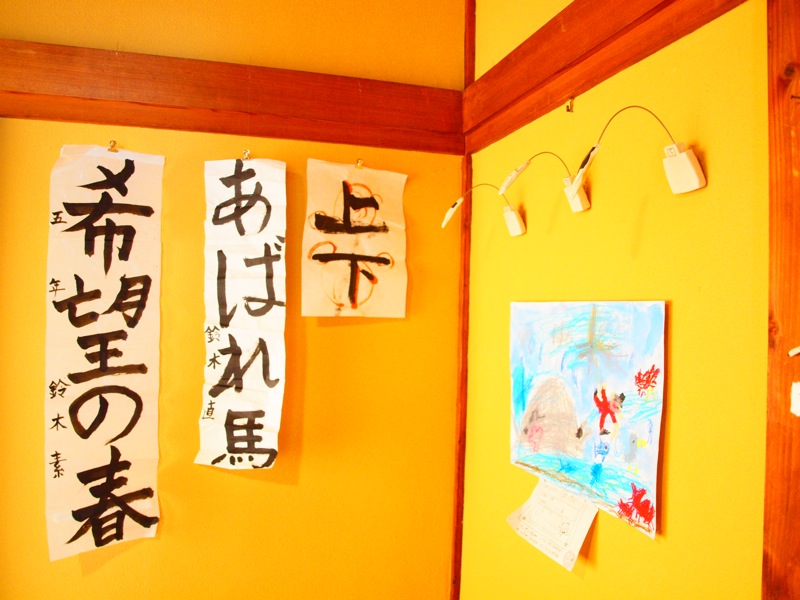 希望の春
五年 鈴木素
あばれ馬
鈴木直
上下